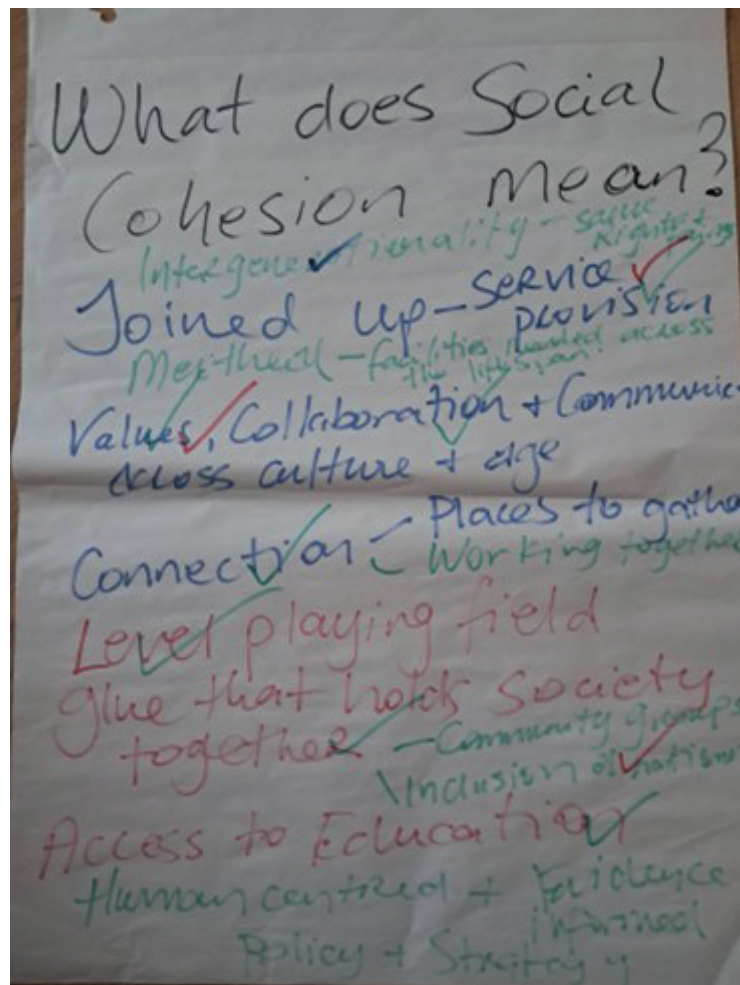 What does Social
Cohesion mean?
Intergenerationality - same
Rights +
Joined up - service
provision
facilities needed across
the lifespan
Values, Collaboration + Communic
across culture + age
Connection - Places to gathe
Working together
Level playing field
glue that holds society
together - Community groups
Inclusion
Access to Education
Human centred + Evidence
informed
Policy + Strategy